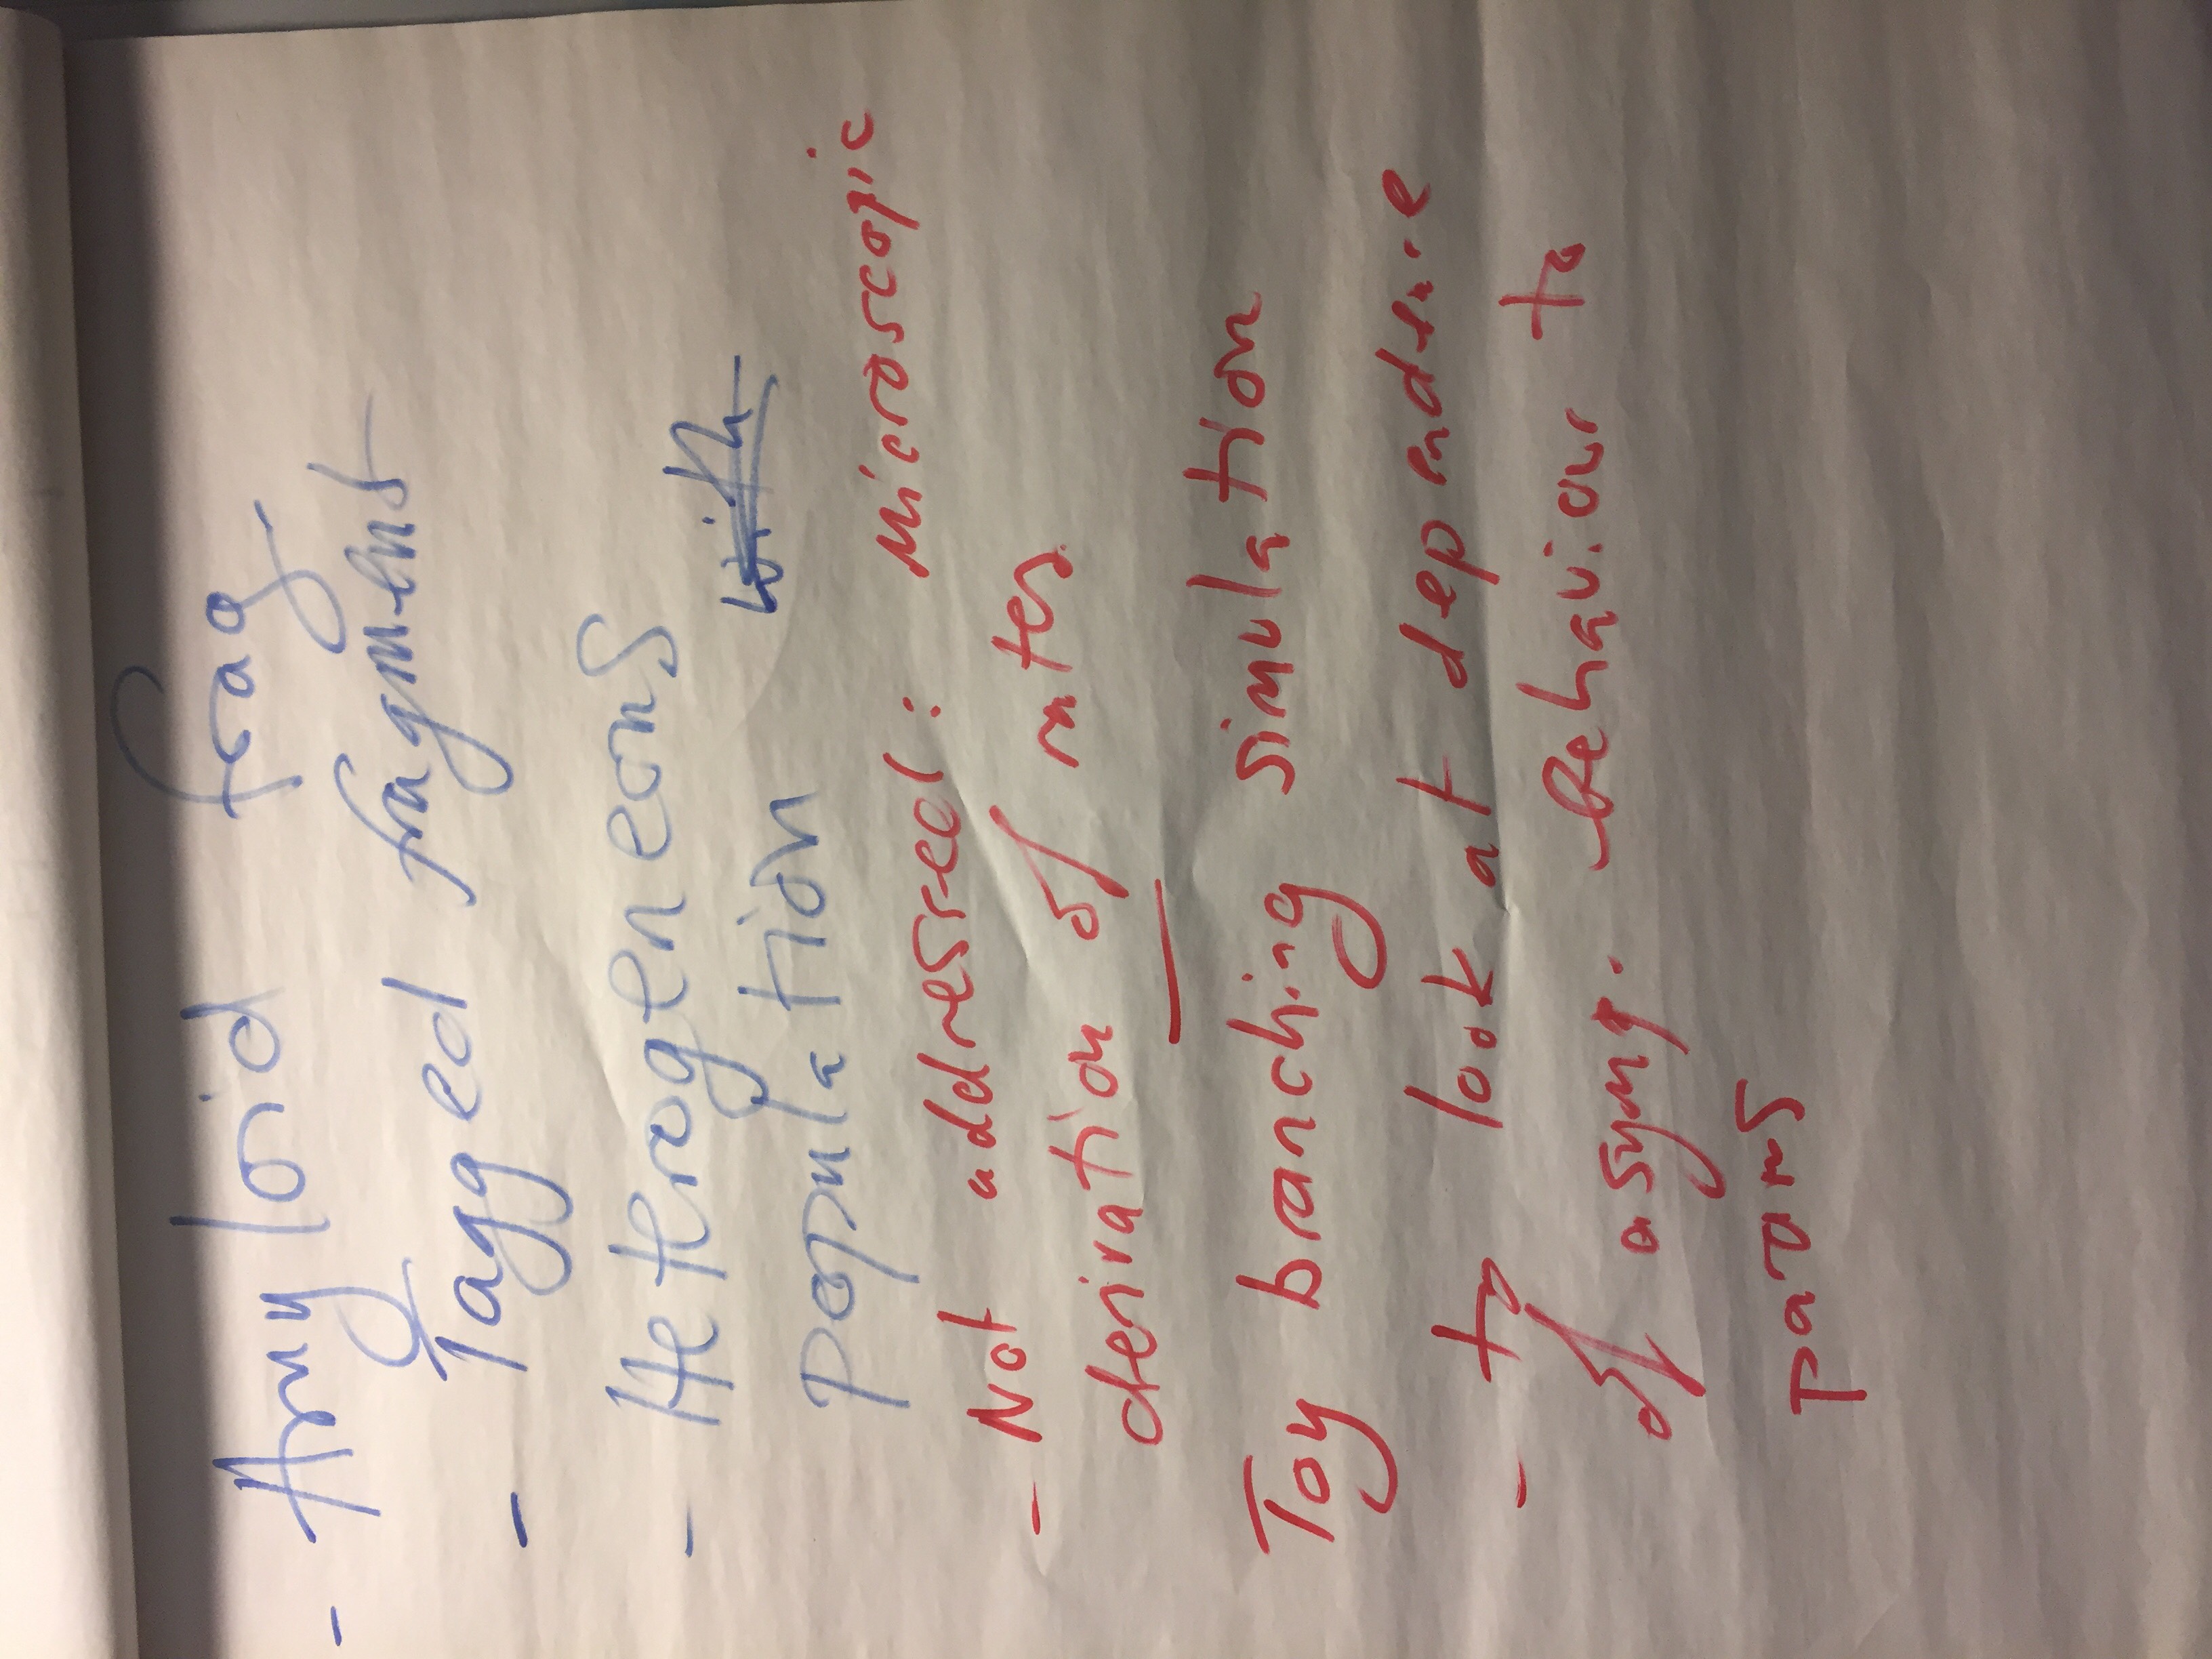 - Amyloid frag
- Tagged fragment
- Heterogeneous
population with
- Not addressed: microscopic
derivation of rates
Toy branching simulation
- to look at dependence
of asymp. behaviour to
params